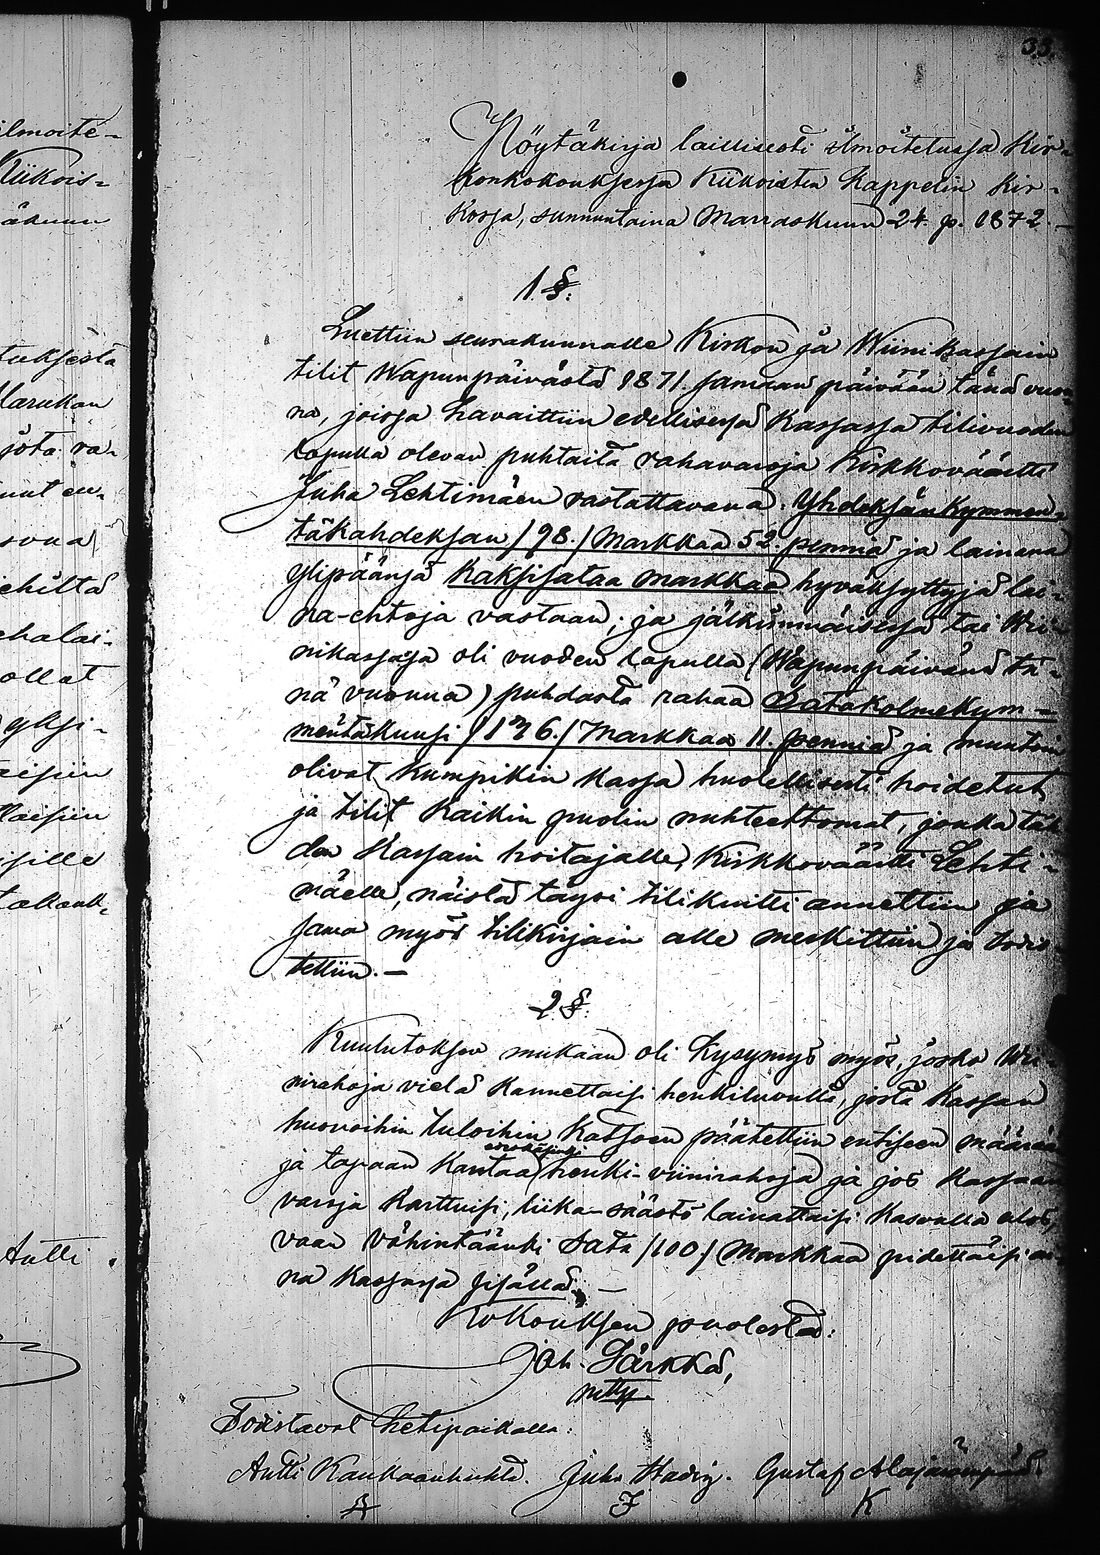 33.
Pöytäkirja laillisesti ilmoitetussa Kir-
konkokouksessa Kiikoisten Kappelin Kir-
kossa, sunnuntaina Marraskuun 24. p. 1872. —
1.§.
Luettiin seurakunnalle Kirkon ja Wiinikassain
tilit Wapunpäivästä 1871. samaan päivään tänä vuon-
na, joissa havaittiin edellisessä Kassassa tilivuoden
lopulla olevan puhtaita rahavaroja Kirkkoväärtti
Juha Lehtimäen vastattavana. Yhdeksänkymmen-
täkahdeksan /98./ Markkaa 52. penniä ja lainana
ylipäänsä Kaksisataa markkaa hyväksyttyjä lai-
na-ehtoja vastaan; ja jälkimmäisessä tai Wii-
nikassassa oli vuoden lopulla (Wapunpäivänä tä-
nä vuonna) puhdasta rahaa Satakolmekym-
mentäkuusi /136./ Markkaa 11. penniä ja muutoin
olivat kumpikin Kassa huolellisesti hoidetut
ja tilit Kaikin puolin nuhteettomat, jonka täh-
den Kassain hoitajalle, Kirkkoväärtti Lehti-
mäelle, näistä täysi tilikuitti annettiin ja
sama myös tilikirjain alle merkittiin ja todis-
tettiin. —
2.§.
Kuulutuksen mukaan oli Kysymys myös, josko Wii-
nirahoja vielä Kannettaisi henkiluvulta, josta Kassan
huonoihin tuloihin Katsoen päätettiin entiseen määrään
ja tapaan Kantaa henki-viinirahoja ja jos Kassaan
varoja Karttuisi, liika-säästö lainattaisi Kasvulla ulos,
vaan vähintäänki Sata /100/ Markkaa pidettäisi ai-
na Kassassa sisällä. —
Kokouksen puolesta:
Joh. Särkkä,
Todistavat hetipaikalla:
Antti Kaukaanhuhta. Juho Hadig. Gustaf Alajäänpää.
A J K
ilmoite-
Kiikois-
äkuun
tuksesta
Marukan
jota va-
nut en-
sovva
ehiltä
ehalai-
ollat
yksi-
isille
Antti